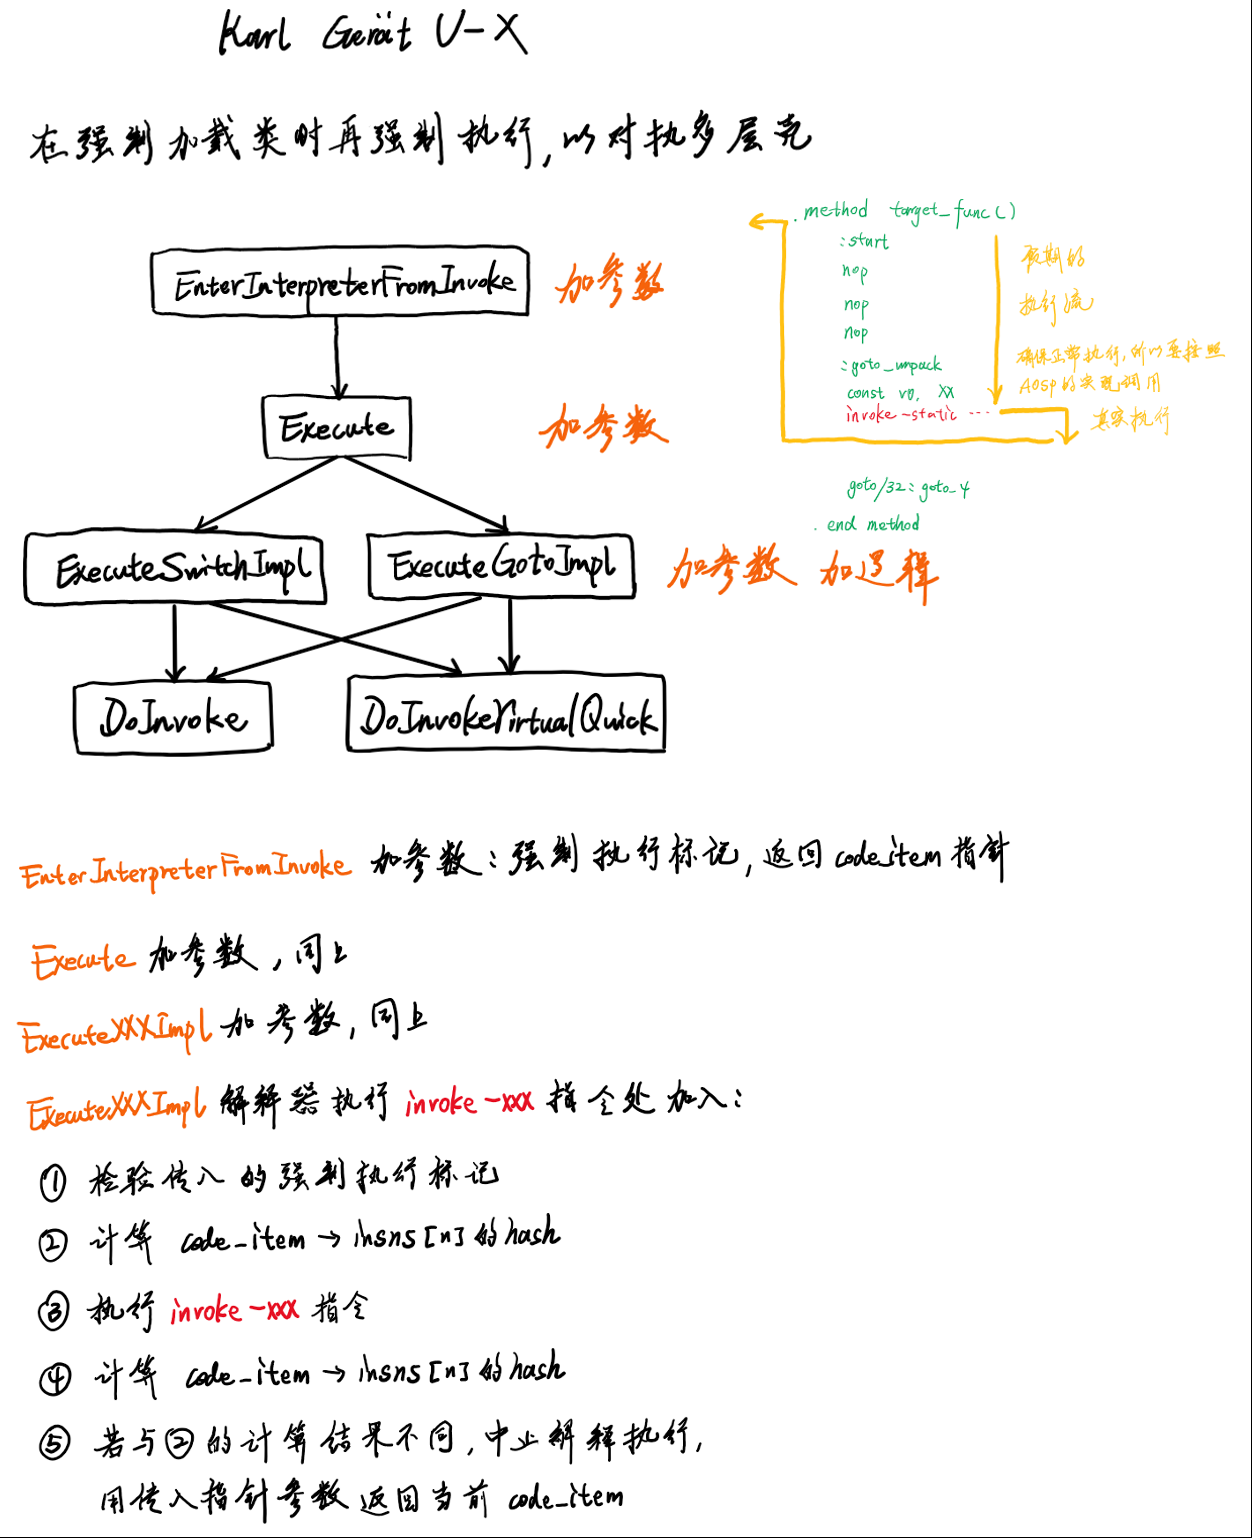 Karl Gerät U-X
在强制加载类时再强制执行,以对执多层壳
EnterInterpreterFromInvoke 加参数
Execute 加参数
ExecuteSwitchImpl ExecuteGotoImpl 加参数 加逻辑
DoInvoke DoInvokeVirtualQuick
.method target_func()
:start
nop
nop
nop
:goto_unpack
const v0, XX
invoke-static ...
goto/32:goto_4
.end method
预期的
执行流
确保正常执行,所以要按照
AOSP的实现调用
真实执行
EnterInterpreterFromInvoke 加参数:强制执行标记,返回codeitem指针
Execute 加参数,同上
ExecuteXXXImpl 加参数,同上
ExecuteXXXImpl 解释器执行 invoke-xxx 指令处加入:
① 检验传入的强制执行标记
② 计算 code_item→insns[n]的hash
③ 执行 invoke-xxx 指令
④ 计算 code_item→insns[n]的hash
⑤ 若与②的计算结果不同,中止解释执行,
用传入指针参数返回当前 code_item